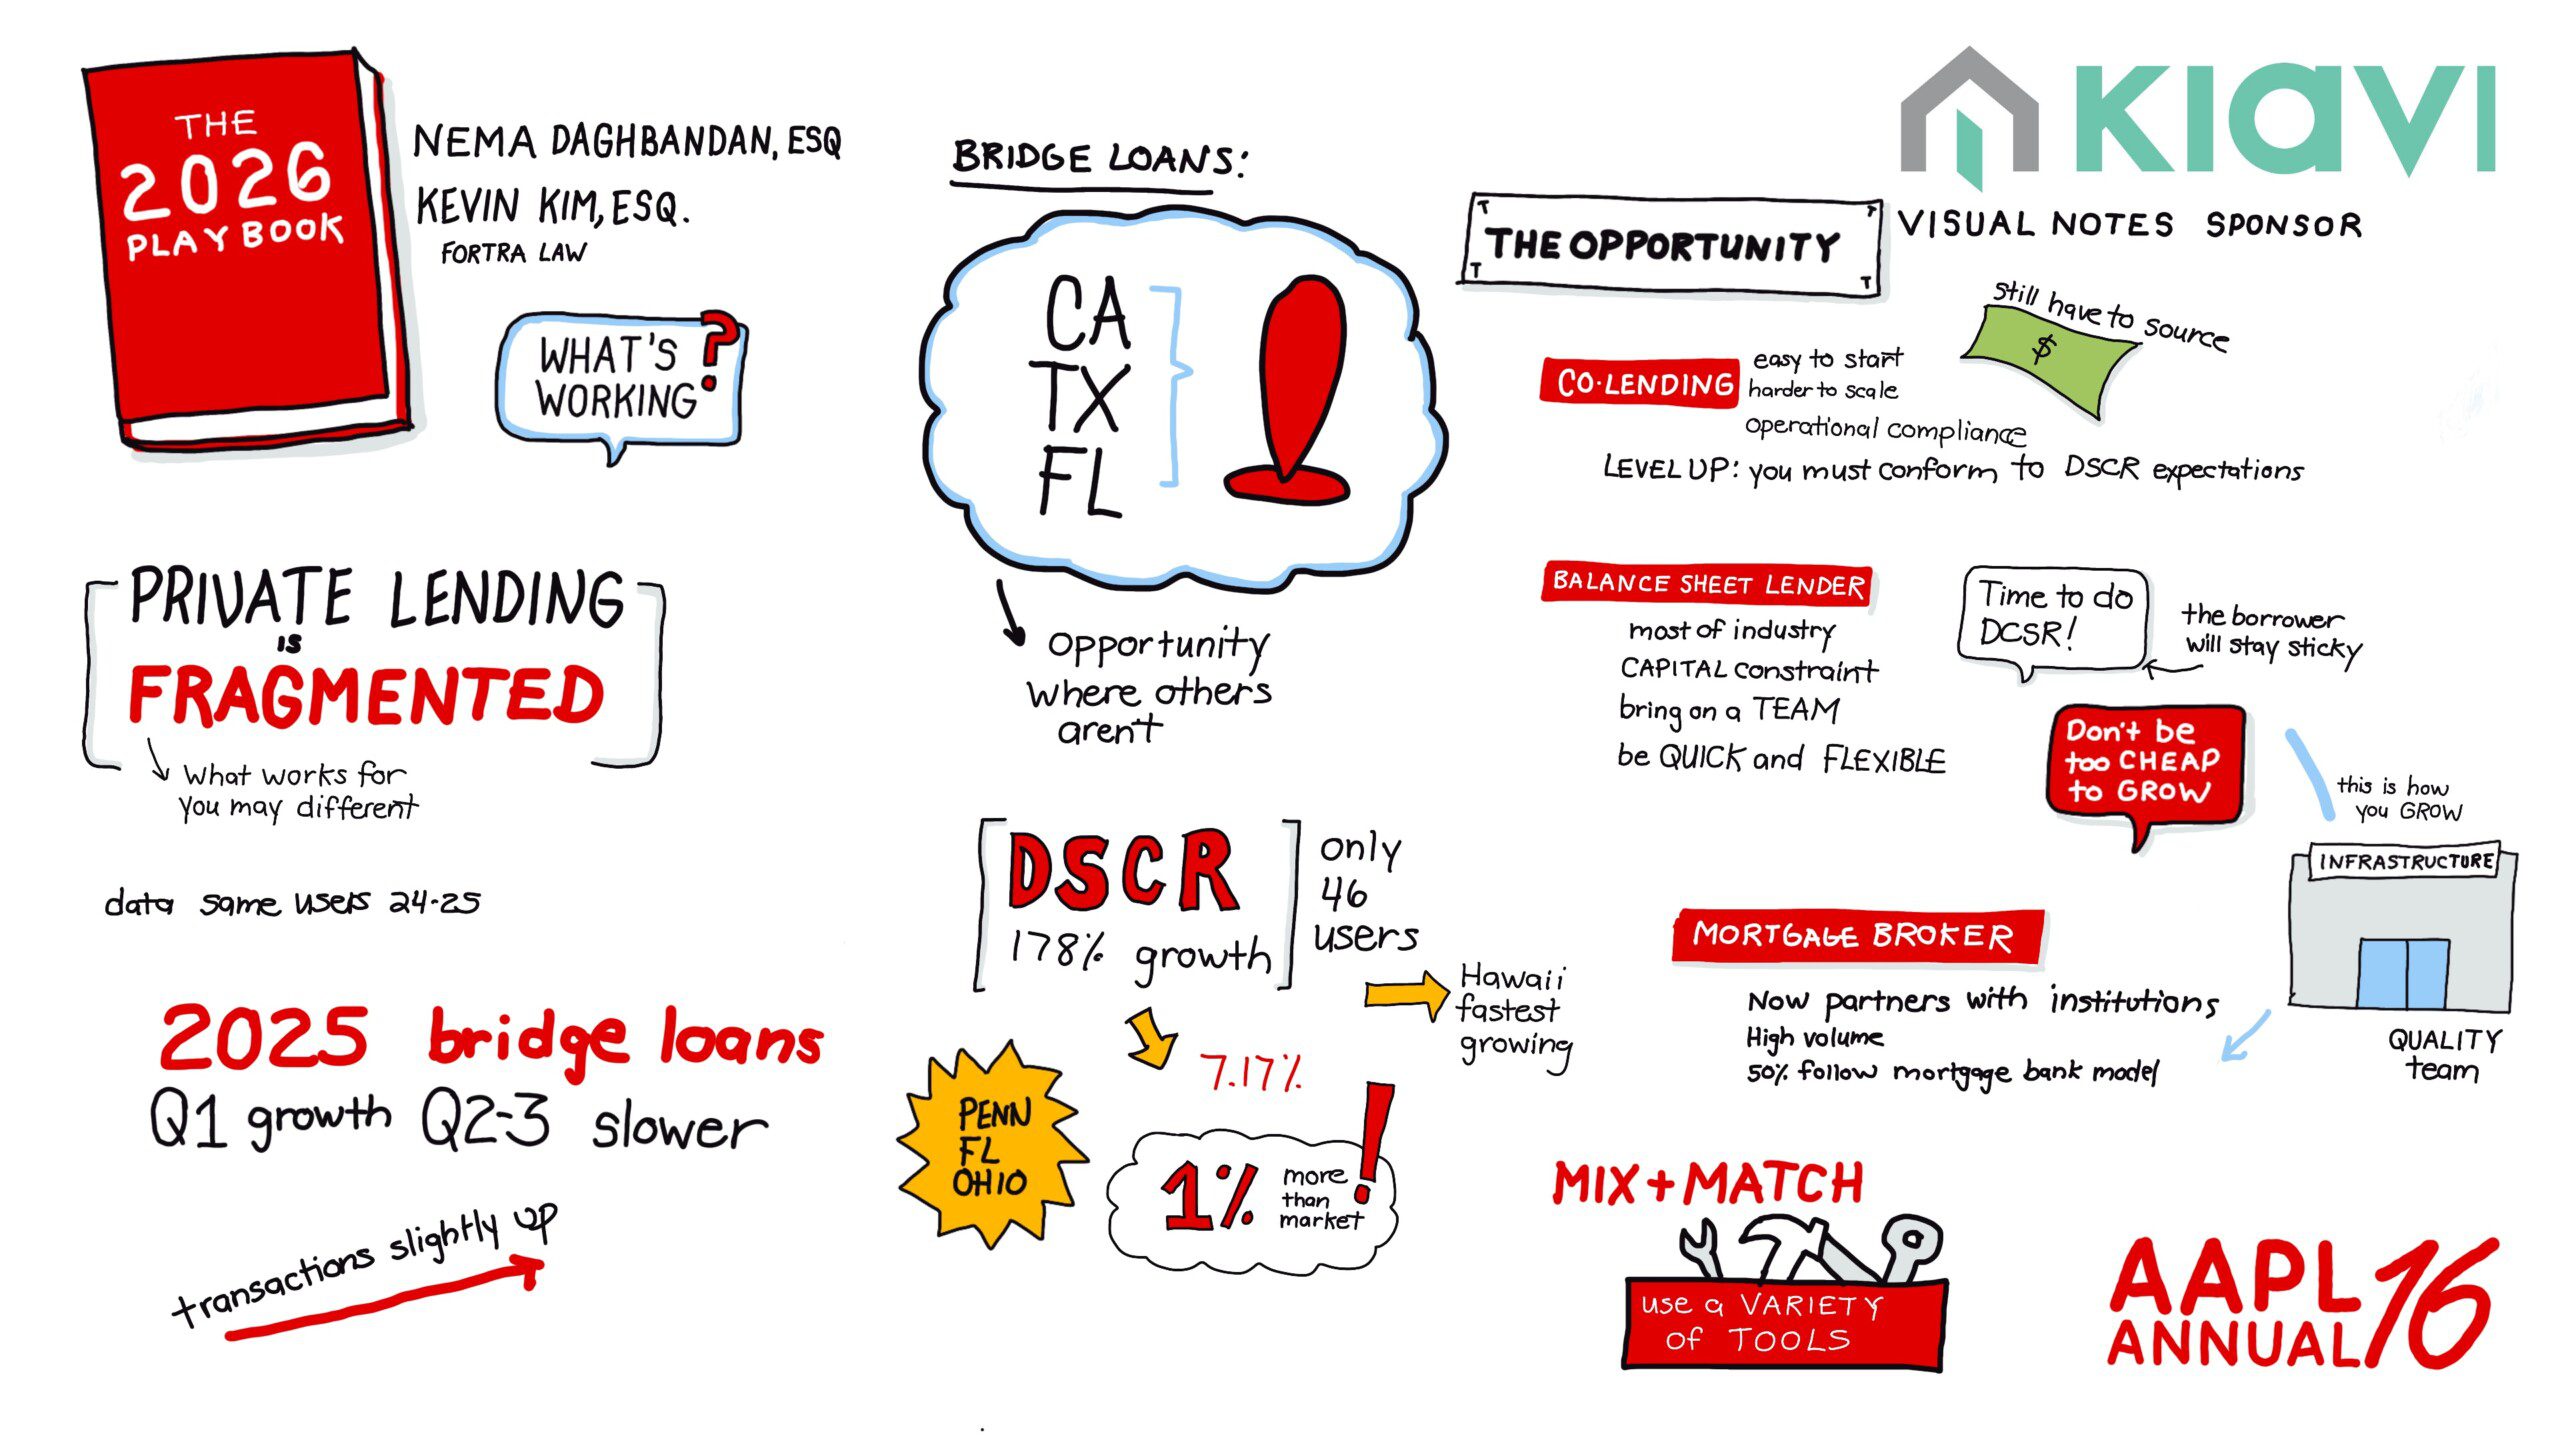 THE
2026
PLAYBOOK
NEMA DAGHBANDAN, ESQ
KEVIN KIM, ESQ.
FORTRA LAW
WHAT'S
WORKING?
PRIVATE LENDING
IS
FRAGMENTED
What works for
you may different
data same users 24-25
2025 bridge loans
Q1 growth Q2-3 slower
transactions slightly up
BRIDGE LOANS:
CA
TX
FL
opportunity
where others
aren't
DSCR
178% growth
only
46
users
Hawaii
fastest
growing
PENN
FL
OHIO
7.17%
1% more
than
market!
KIAVI
VISUAL NOTES SPONSOR
THE OPPORTUNITY
still have to source
$
CO-LENDING
easy to start
harder to scale
operational compliance
LEVEL UP: you must conform to DSCR expectations
BALANCE SHEET LENDER
most of industry
CAPITAL constraint
bring on a TEAM
be QUICK and FLEXIBLE
Time to do
DCSR!
the borrower
will stay sticky
Don't be
too CHEAP
to GROW
this is how
you GROW
INFRASTRUCTURE
QUALITY
team
MORTGAGE BROKER
Now partners with institutions
High volume
50% follow mortgage bank model
MIX + MATCH
use a VARIETY
of TOOLS
AAPL
ANNUAL 16